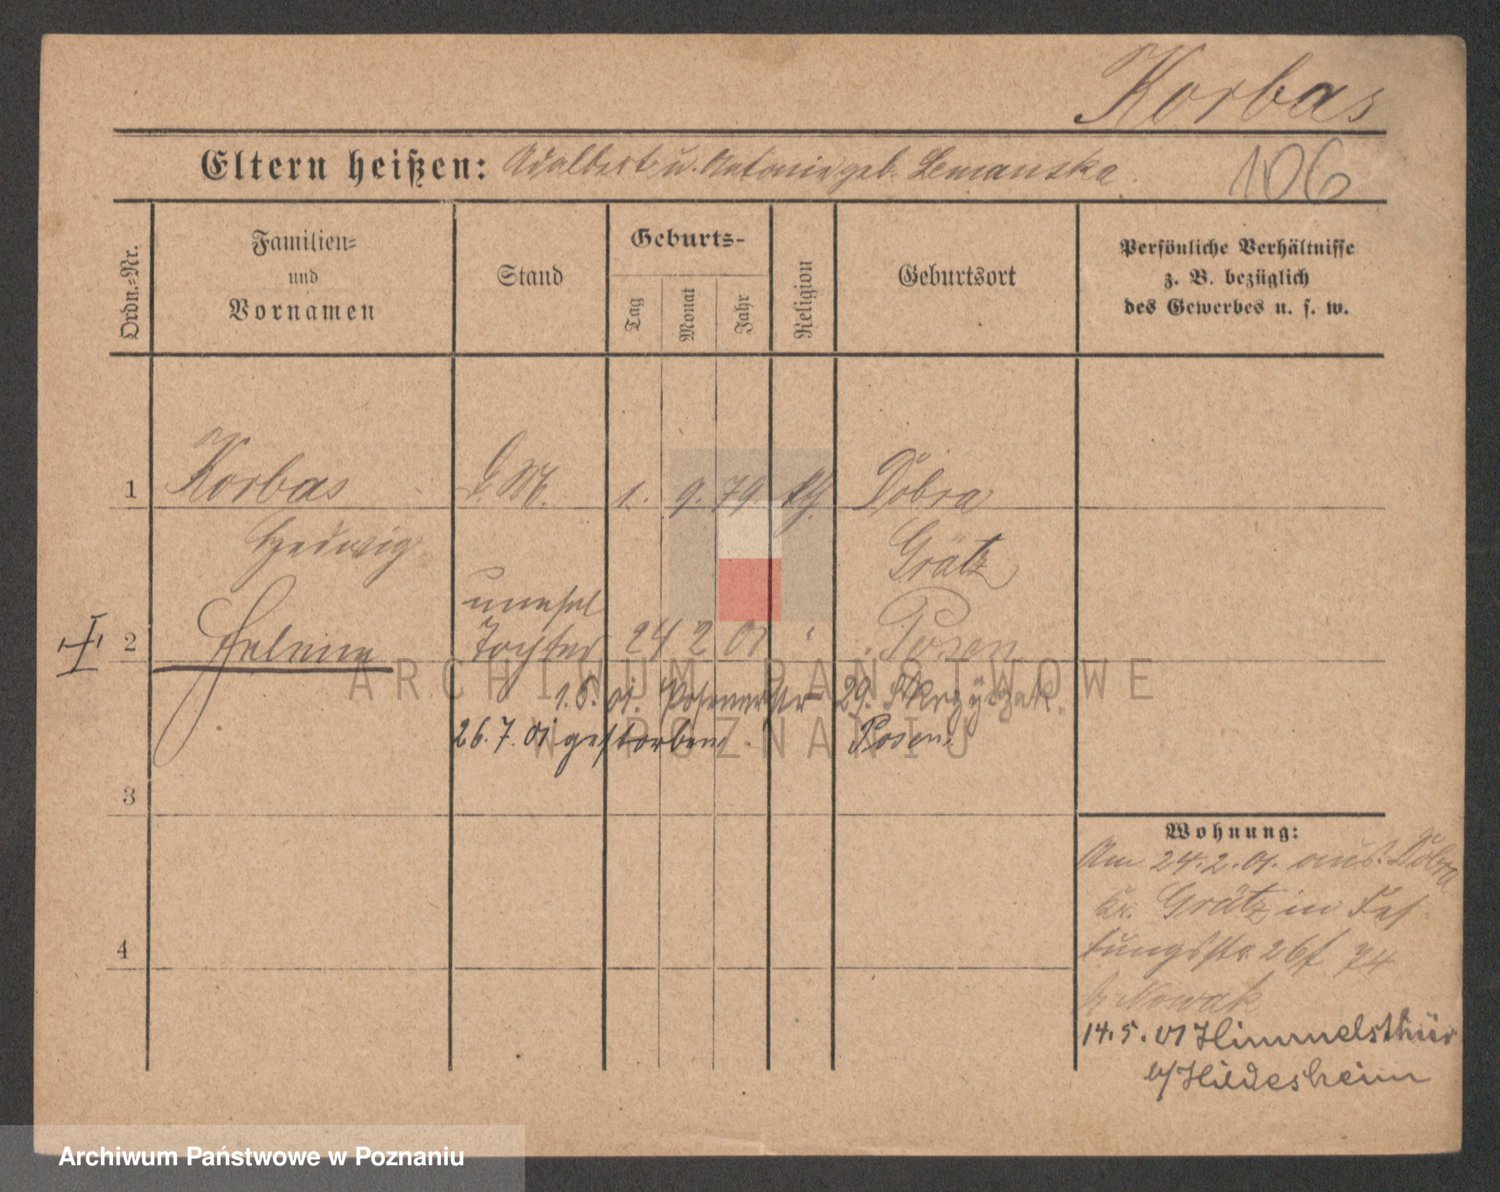 Korbas
Eltern heißen: Adalbert u. Antonie geb. Lemanska.
106
Ordn.-Nr.
Familien-
und
Vornamen
Stand
Geburts-
Tag
Monat
Jahr
Religion
Geburtsort
Persönliche Verhältnisse
z. B. bezüglich
des Gewerbes u. s. w.
1 Korbas D. M. 1. 9. 79. Dobra
Hedwig Grätz
unehel
2 Helene Tochter 24 2 01 " Posen
1. 5. 01. Posenerstr 29. Skrzypczak.
26. 7. 01 gestorben. Posen.
3
4
Wohnung:
Am 24. 2. 01. aus Dobra
Kr. Grätz in Fes-
tungsstr. 26
b Nowak
14. 5. 01 Himmelsthür
b/Hildesheim
ARCHIWUM PAŃSTWOWE
W POZNANIU
Archiwum Państwowe w Poznaniu